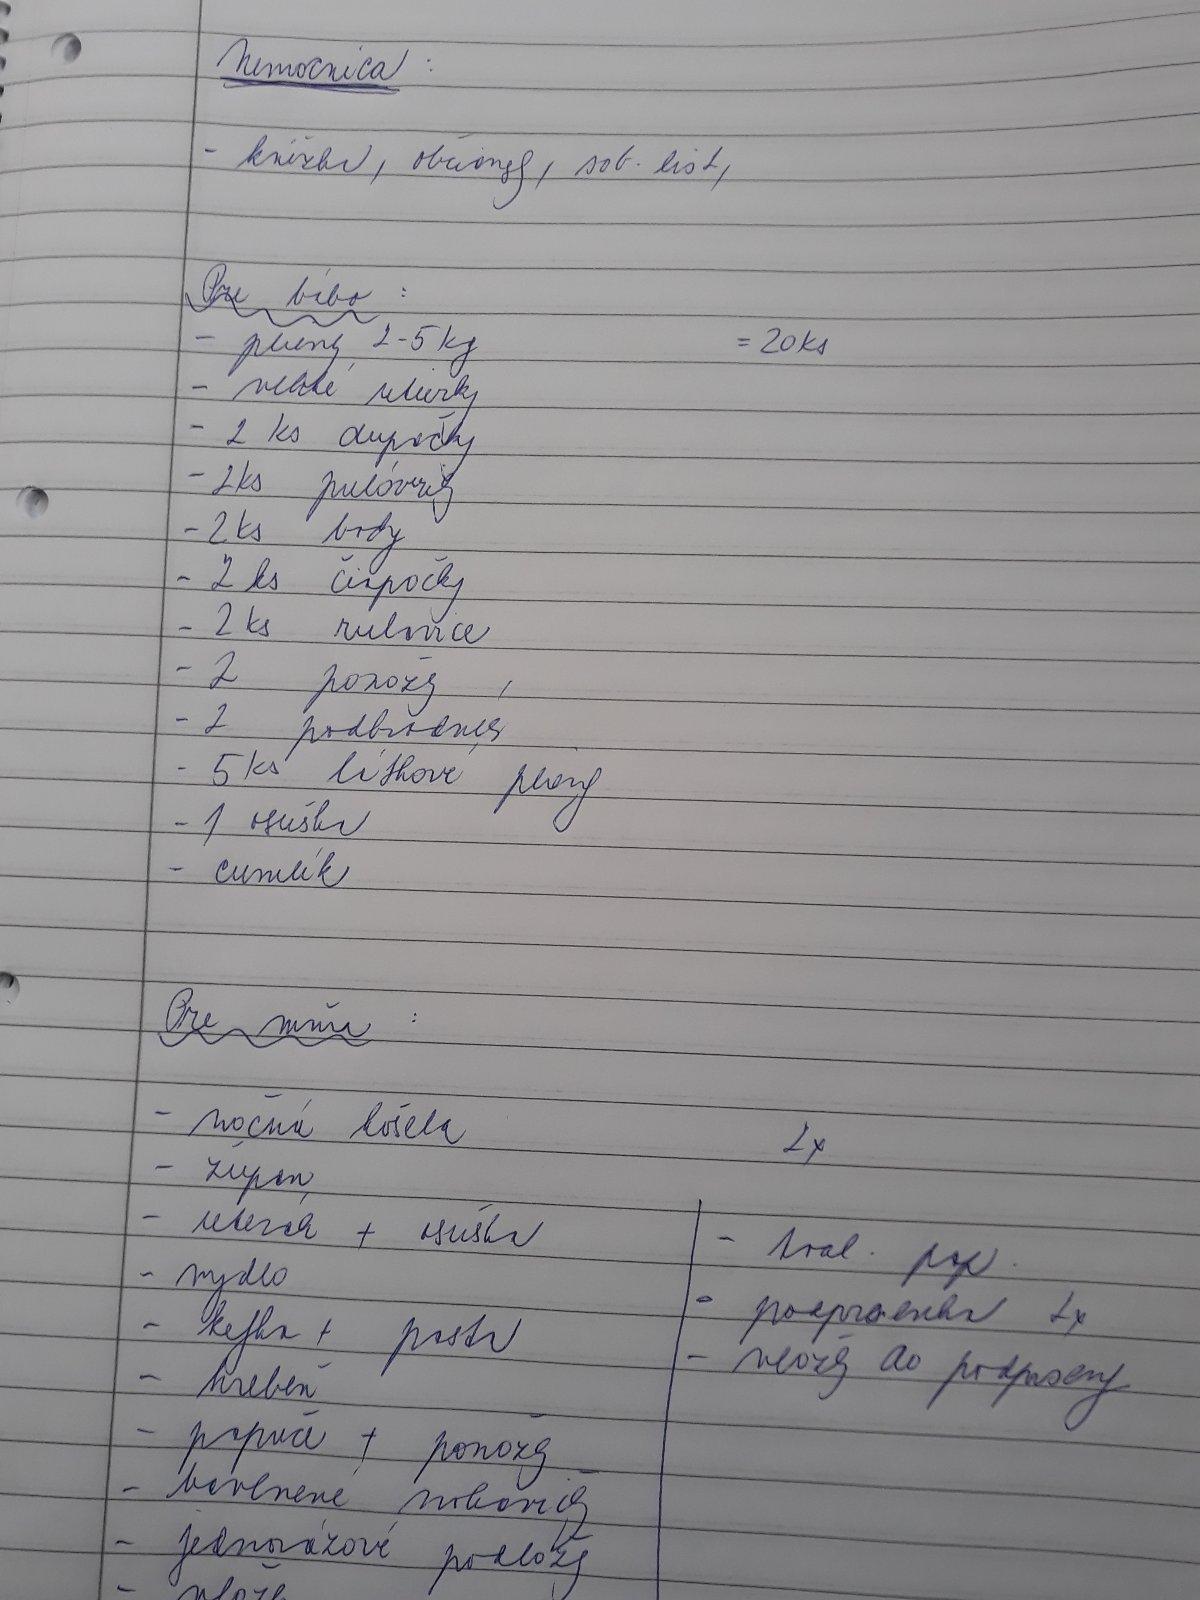 Nemocnica :
- knižka, občiansky, sob. list,
Pre bibo :
- plieny 2-5 kg = 20 ks
- vlhké utierky
- 2 ks dupačky
- 2 ks pulóvriky
- 2 ks body
- 2 ks čiapočky
- 2 ks rukavice
- 2 ponožky
- 2 podbradníky
- 5 ks látkové plieny
- 1 osuška
- cumlík
Pre mňa :
- nočná košeľa 2x
- župan
- uterák + osuška
- mydlo
- kefka + pasta
- hrebeň
- papuče + ponožky
- bavlnené nohavičky
- jednorázové podložky
- vložk
- toal. pap.
- podprsenka 2x
- vložky do podprseny